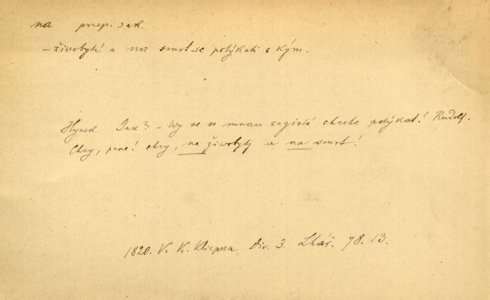 na praep. s ak.
– živobytí a na smrt se potýkati s kým.
Hynek. Jak? – Wy se se mnau zagisté chcete potýkat? Rudolf.
Chcy, pane! chcy, na žiwobyty a na smrt!
1820. V. K. Klicpera Div. 3. Lhář. 78. 13.